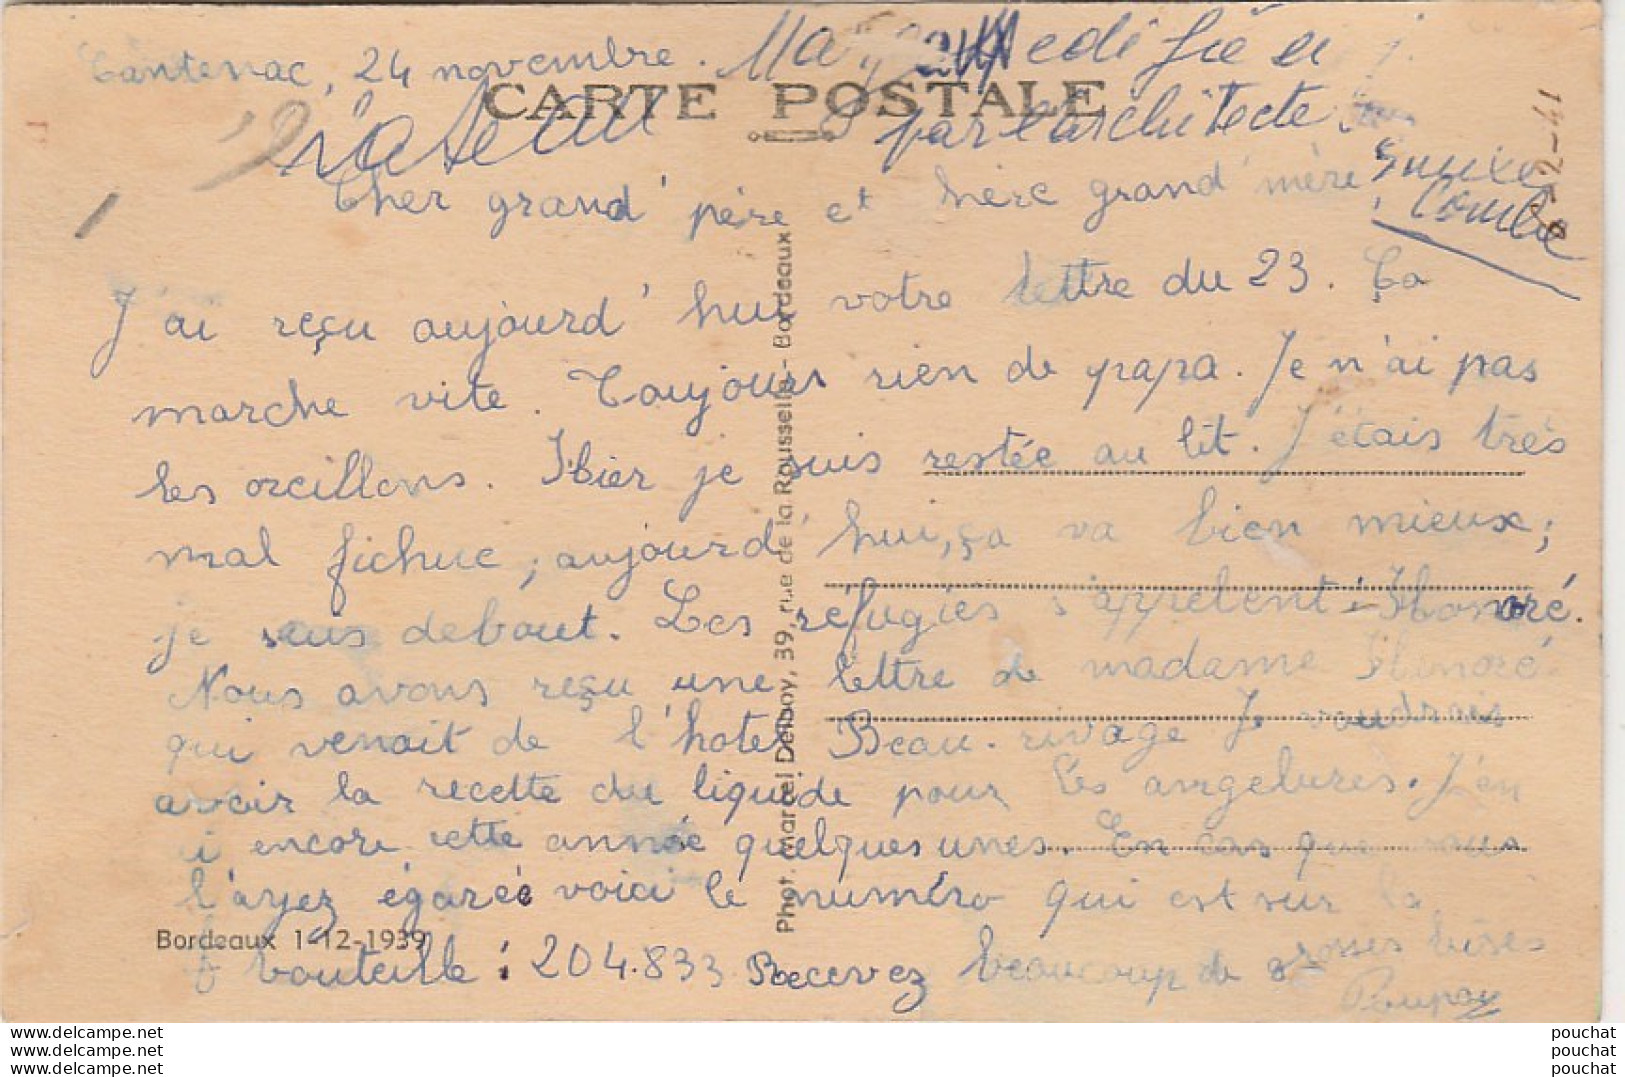 Cantenac, 24 novembre.
édifié
par l'architecte
Combe
CARTE POSTALE
Cher grand' père et chère grand' mère
J'ai reçu aujourd'hui votre lettre du 23. Ça
marche vite. Toujours rien de papa. Je n'ai pas
les oreillons. Hier je suis restée au lit. J'étais très
mal fichue, aujourd'hui, ça va bien mieux;
je suis debout. Les réfugiés s'appelent Honoré.
Nous avons reçu une lettre de madame Honoré
qui venait de l'hotel Beau-rivage Je voudrais
avoir la recette du liquide pour les angelures. J'en
ai encore cette année quelques unes. En cas que vous
l'ayez égarée voici le numéro qui est sur la
bouteille : 204.833 Recevez beaucoup de grosses bises
Poupoy
Bordeaux 1-12-1939
Phot. Marcel Delboy, 39, rue de la Rousselle - Bordeaux
www.delcampe.net
www.delcampe.net
www.delcampe.net
pouchat
pouchat
pouchat